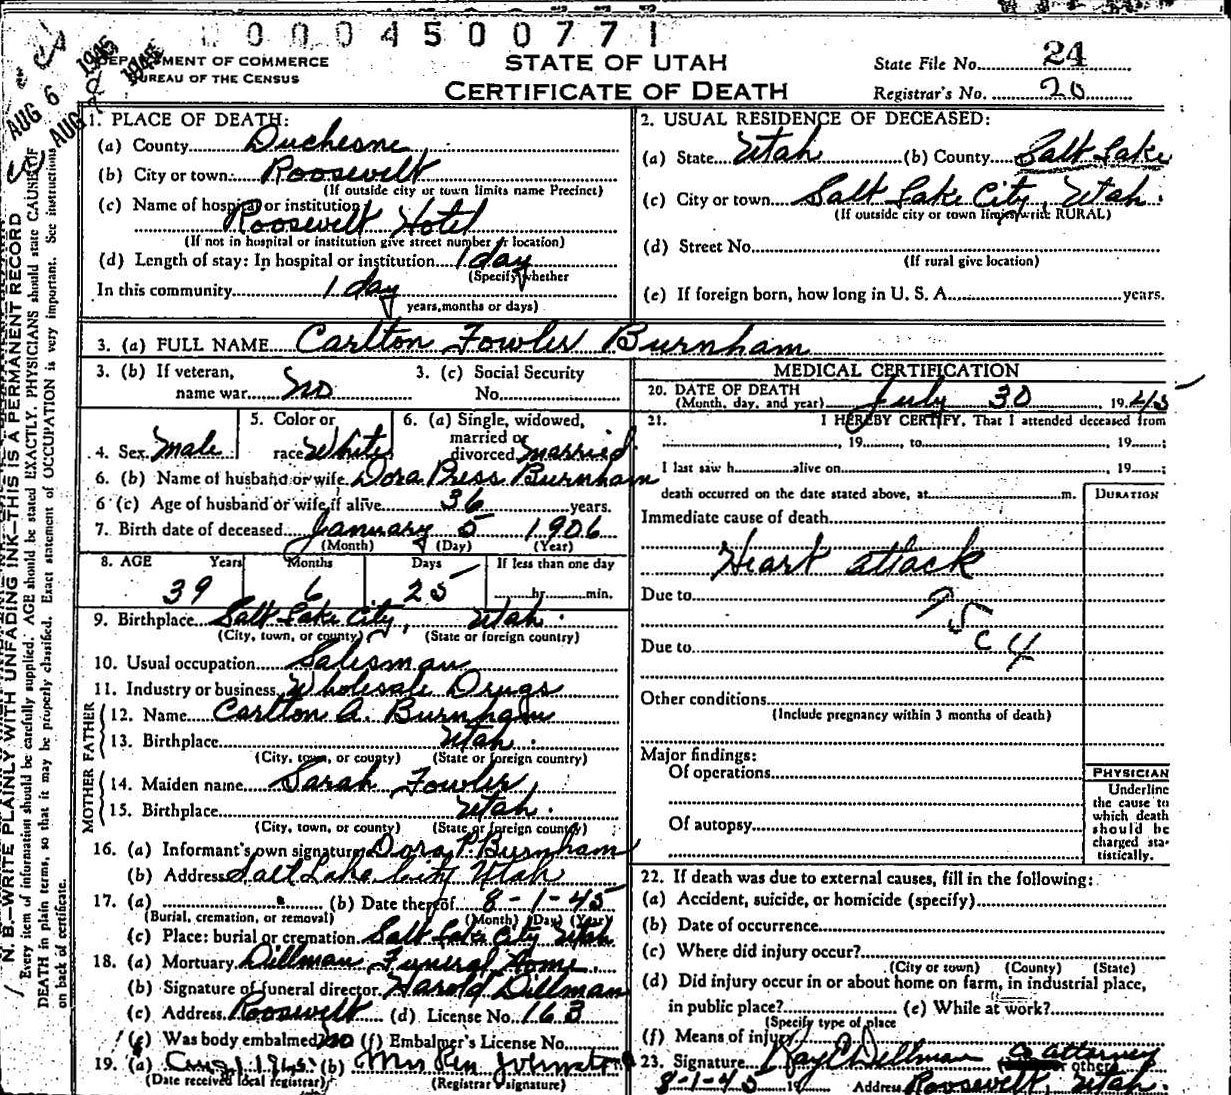 0 0 0 4 5 0 0 7 7 1
DEPARTMENT OF COMMERCE
BUREAU OF THE CENSUS
AUG 6 1945
AUG 1945
STATE OF UTAH
CERTIFICATE OF DEATH
State File No. 24
Registrar's No. 20
N. B.—WRITE PLAINLY WITH UNFADING INK—THIS IS A PERMANENT RECORD
Every item of information should be carefully supplied. AGE should be stated EXACTLY. PHYSICIANS should state CAUSE OF
DEATH in plain terms, so that it may be properly classified. Exact statement of OCCUPATION is very important. See instructions
on back of certificate.
1. PLACE OF DEATH:
(a) County Duchesne
(b) City or town: Roosevelt
(If outside city or town limits name Precinct)
(c) Name of hospital or institution
Roosevelt Hotel
(If not in hospital or institution give street number or location)
(d) Length of stay: In hospital or institution 1 day
(Specify whether
In this community 1 day
years, months or days)
2. USUAL RESIDENCE OF DECEASED:
(a) State Utah (b) County Salt Lake
(c) City or town Salt Lake City, Utah.
(If outside city or town limits, write RURAL)
(d) Street No.
(If rural give location)
(e) If foreign born, how long in U. S. A. years.
3. (a) FULL NAME Carlton Fowler Burnham
3. (b) If veteran,
name war no
3. (c) Social Security
No.
4. Sex Male
5. Color or
race White
6. (a) Single, widowed,
married or
divorced married
6. (b) Name of husband or wife Dora Press Burnham
6 (c) Age of husband or wife if alive 36 years.
7. Birth date of deceased January 5 1906
(Month) (Day) (Year)
8. AGE Years Months Days If less than one day
39 6 25 hr. min.
9. Birthplace Salt Lake City, Utah.
(City, town, or county) (State or foreign country)
10. Usual occupation Salesman
11. Industry or business Wholesale Drugs
FATHER
12. Name Carlton A. Burnham
13. Birthplace Utah.
(City, town, or county) (State or foreign country)
MOTHER
14. Maiden name Sarah Fowler
15. Birthplace Utah.
(City, town, or county) (State or foreign country)
16. (a) Informant's own signature Dora P. Burnham
(b) Address Salt Lake City Utah
17. (a) (b) Date thereof 8-1-45
(Burial, cremation, or removal) (Month) (Day) (Year)
(c) Place: burial or cremation Salt Lake City Utah
18. (a) Mortuary Dillman Funeral Home.
(b) Signature of funeral director Harold Dillman
(c) Address Roosevelt (d) License No. 163
(e) Was body embalmed no (f) Embalmer's License No.
19. (a) Aug 1 1945 (b) Mrs Johnston
(Date received local registrar) (Registrar's signature)
MEDICAL CERTIFICATION
20. DATE OF DEATH
(Month, day, and year) July 30, 1945
21. I HEREBY CERTIFY, That I attended deceased from
, 19 , to , 19 ;
I last saw h alive on , 19 ;
death occurred on the date stated above, at m.
DURATION
Immediate cause of death
Heart attack
Due to
95c4
Due to
Other conditions
(Include pregnancy within 3 months of death)
Major findings:
Of operations
Of autopsy
PHYSICIAN
Underline
the cause to
which death
should be
charged sta-
tistically.
22. If death was due to external causes, fill in the following:
(a) Accident, suicide, or homicide (specify)
(b) Date of occurrence
(c) Where did injury occur?
(City or town) (County) (State)
(d) Did injury occur in or about home on farm, in industrial place,
in public place? (e) While at work?
(Specify type of place
(f) Means of injury
23. Signature Ray E. Dillman Co attorney
other
8-1-45 19 Address Roosevelt, Utah.